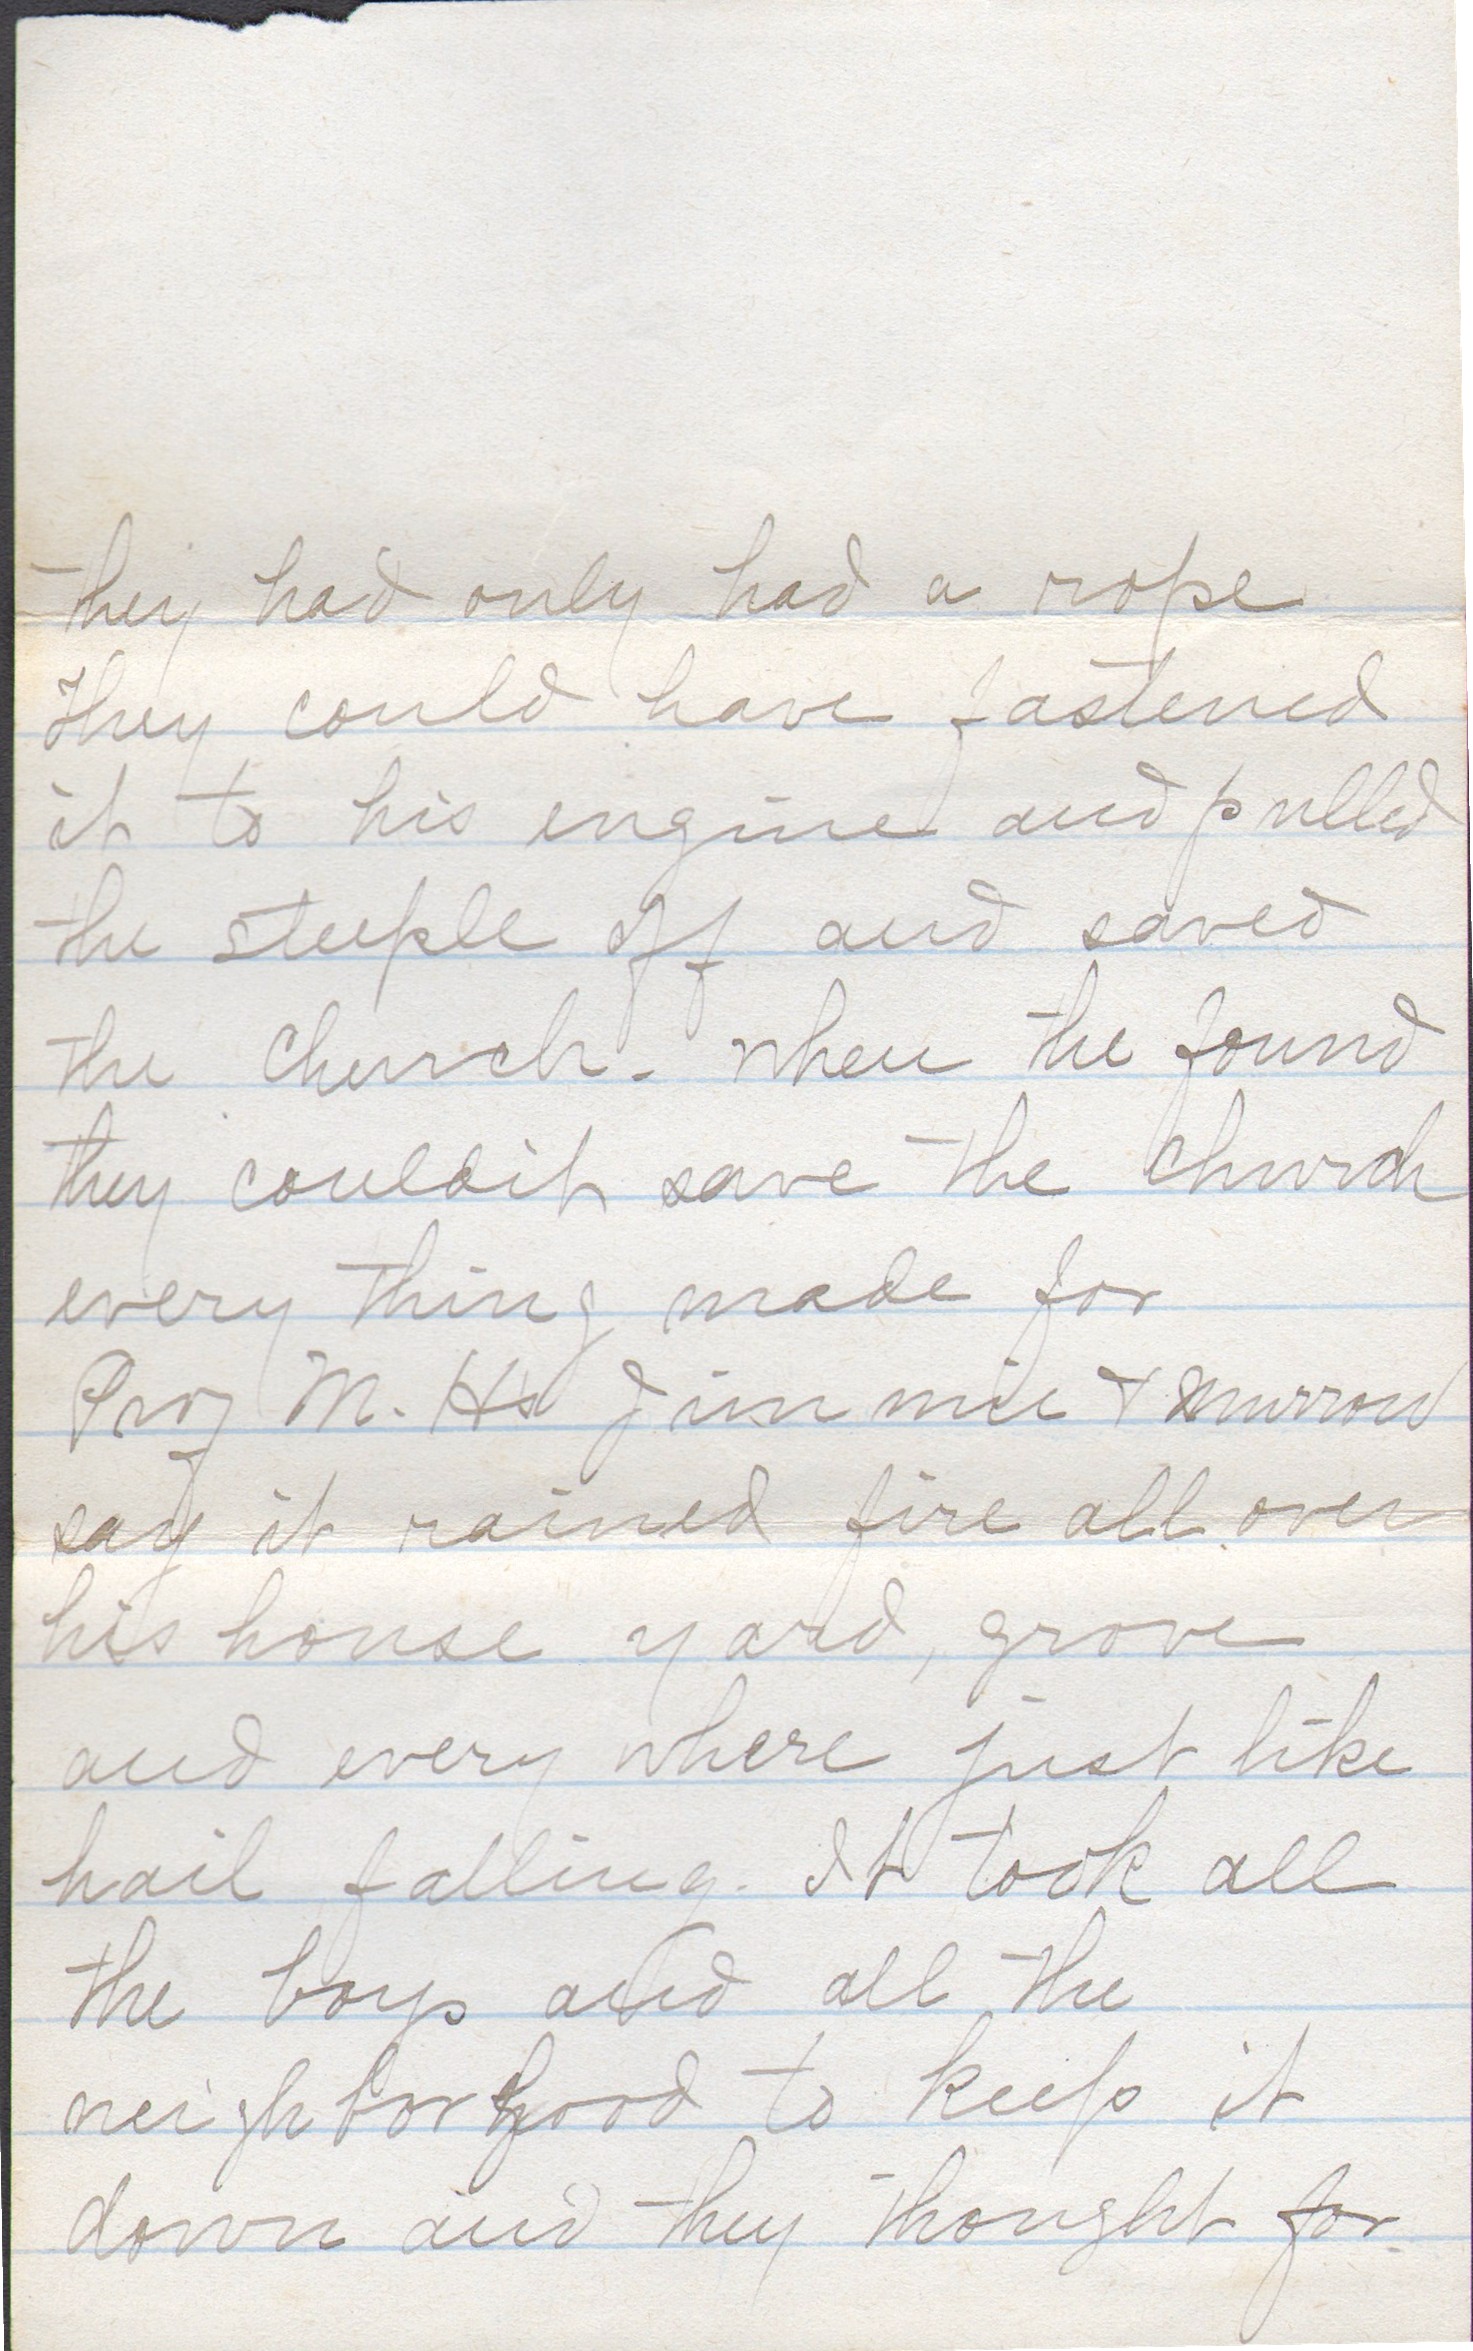 they had only had a rope
they could have fastened
it to his engine and pulled
the steeple off and saved
the church. when the found
they couldn't save the church
every thing made for
Prof M. H's Jimmie & Murrow
say it rained fire all over
his house yard, grove
and every where just like
hail falling. It took all
the boys and all the
neighborhood to keep it
down and they thought for